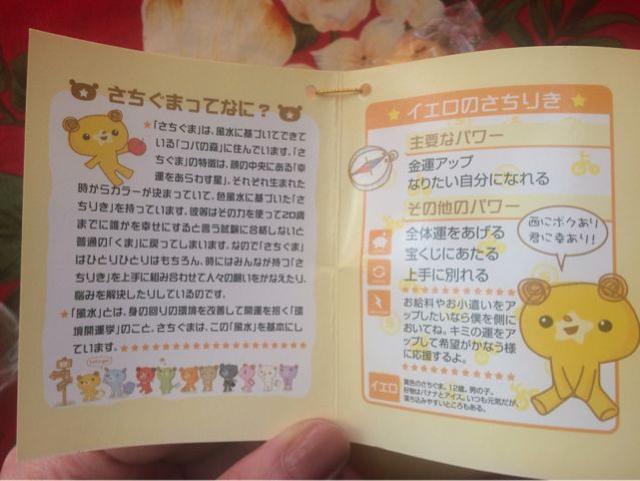 さちぐまってなに?
★「さちぐま」は、風水に基づいてできて
いる「コパの森」に住んでいます。「さ
ちぐま」の特徴は、頭の中央にある「幸
運をあらわす星」。それぞれ生まれた
時からカラーが決まっていて、色風水に基づいた「さ
ちりき」を持っています。彼等はその力を使って20歳
までに誰かを幸せにすると言う試験に合格しないと
普通の「くま」に戻ってしまいます。なので「さちぐま」
はひとりひとりはもちろん、時にはみんなが持つ「さ
ちりき」を上手に組み合わせて人々の願いをかなえたり、
悩みを解決したりしているのです。
★「風水」とは、身の回りの環境を改善して開運を招く「環
境開運学」のこと。さちぐまは、この「風水」を基本にし
ています。★★★★★★★★★★★★★★★
★イエロのさちりき★
主要なパワー
金運アップ
なりたい自分になれる
その他のパワー
全体運をあげる
宝くじにあたる
上手に別れる
西にボクあり
君に幸あり!
お給料やお小遣いをア
ップしたいなら僕を側に
おいてね。キミの運をア
ップして希望がかなう様
に応援するよ。
イエロ
黄色のさちぐま。12歳。男の子。
好物はバナナとアイス。いつも元気だが、
落ち込みやすいところもある。